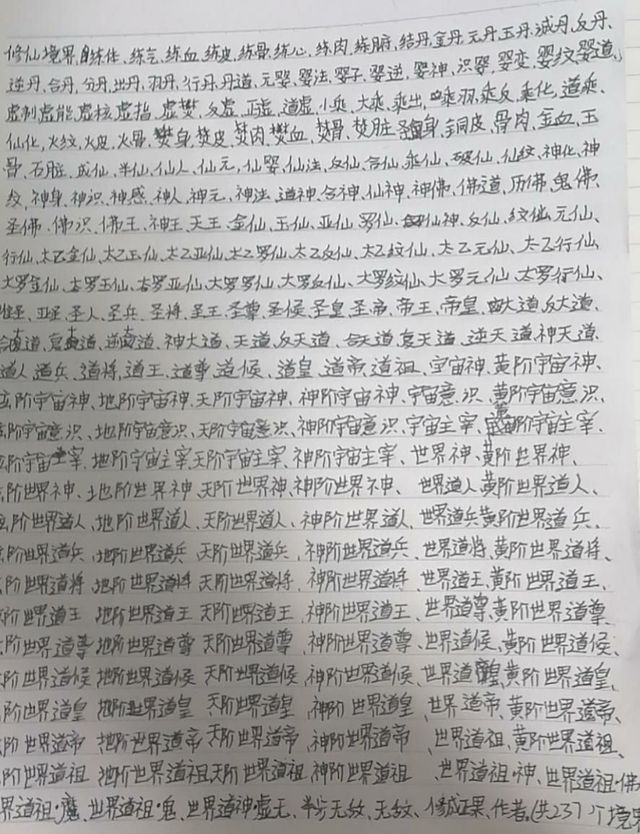 修仙境界,自练体、练气、练血、练皮、练骨、练心、练肉、练脏、结丹、金丹、元丹、玉丹、诚丹、反丹、
逆丹、合丹、分丹、出丹、羽丹、行丹、丹道、元婴、婴法、婴子、婴逆、婴神、识婴、婴变、婴纹、婴道、
虚制、虚能、虚核、虚指、虚焚、反虚、正虚、道虚、小乘、大乘、乘出、乘羽、乘反、乘化、道乘、
仙化、火纹、火皮、火骨、焚身、焚皮、焚肉、焚血、焚骨、焚脏、身、铜皮、骨肉、金血、玉
骨、石脏、成仙、半仙、仙人、仙元、仙婴、仙法、反仙、合仙、乘仙、破仙、仙纹、神化、神
纹、神身、神识、神感、神人、神元、神法、道神、合神、仙神、神佛、佛道、历佛、鬼佛、
圣佛、佛识、佛王、神王、天王、金仙、玉仙、亚仙、罗仙、仙神、反仙、纹仙、元仙、
行仙、太乙金仙、太乙玉仙、太乙亚仙、太乙罗仙、太乙反仙、太乙纹仙、太乙元仙、太乙行仙
大罗金仙、大罗玉仙、大罗亚仙、大罗罗仙、大罗反仙、大罗纹仙、大罗元仙、大罗行仙、
圣、亚圣、圣人、圣兵、圣将、圣王、圣尊、圣侯、圣皇、圣帝、帝王、帝皇、大道、反大道、
合大道、大道、逆大道、神大道、天道、反天道、合天道、复天道、逆天道、神天道、
道人、道兵、道将、道王、道尊、道候、道皇、道帝、道祖、宇宙神、黄阶宇宙神、
玄阶宇宙神、地阶宇宙神、天阶宇宙神、神阶宇宙神、宇宙意识、黄阶宇宙意识、
玄阶宇宙意识、地阶宇宙意识、天阶宇宙意识、神阶宇宙意识、宇宙主宰、黄阶宇宙主宰、
阶宇宙主宰、地阶宇宙主宰、天阶宇宙主宰、神阶宇宙主宰、世界神、黄阶世界神、
阶世界神、地阶世界神、天阶世界神、神阶世界神、世界道人、黄阶世界道人、
玄阶世界道人、地阶世界道人、天阶世界道人、神阶世界道人、世界道兵、黄阶世界道兵、
阶世界道兵、地阶世界道兵、天阶世界道兵、神阶世界道兵、世界道将、黄阶世界道将、
阶世界道将 地阶世界道将 天阶世界道将、神阶世界道将、世界道王、黄阶世界道王、
阶世界道王 地阶世界道王 天阶世界道王、神阶世界道王、世界道尊、黄阶世界道尊、
阶世界道尊 地阶世界道尊 天阶世界道尊、神阶世界道尊、世界道候、黄阶世界道候、
阶世界道候 地阶世界道候 天阶世界道候、神阶世界道候、世界道皇、黄阶世界道皇、
阶世界道皇 地阶世界道皇 天阶世界道皇、神阶世界道皇、世界道帝、黄阶世界道帝、
阶世界道帝 地阶世界道帝 天阶世界道帝、神阶世界道帝、世界道祖、黄阶世界道祖、
阶世界道祖 地阶世界道祖 天阶世界道祖 神阶世界道祖、世界道祖·神、世界道祖·佛
界道祖·魔、世界道祖·鬼、世界道神·虚无、半步无纹、无纹、修成正果、作者。(共237个境